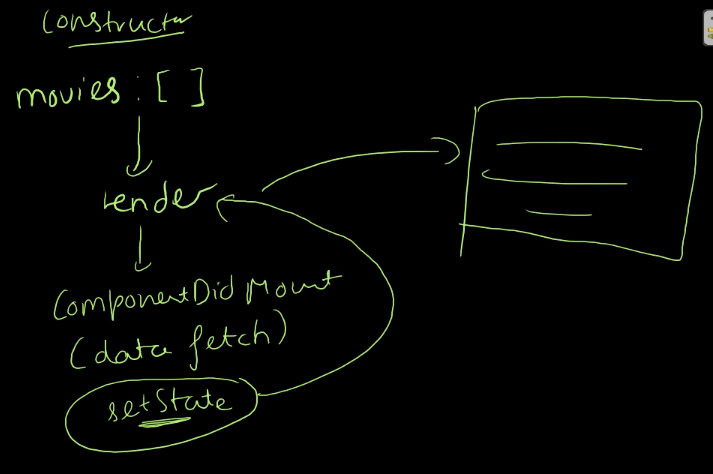 Constructor
movies : [ ]
render
ComponentDidMount
(data fetch)
setState